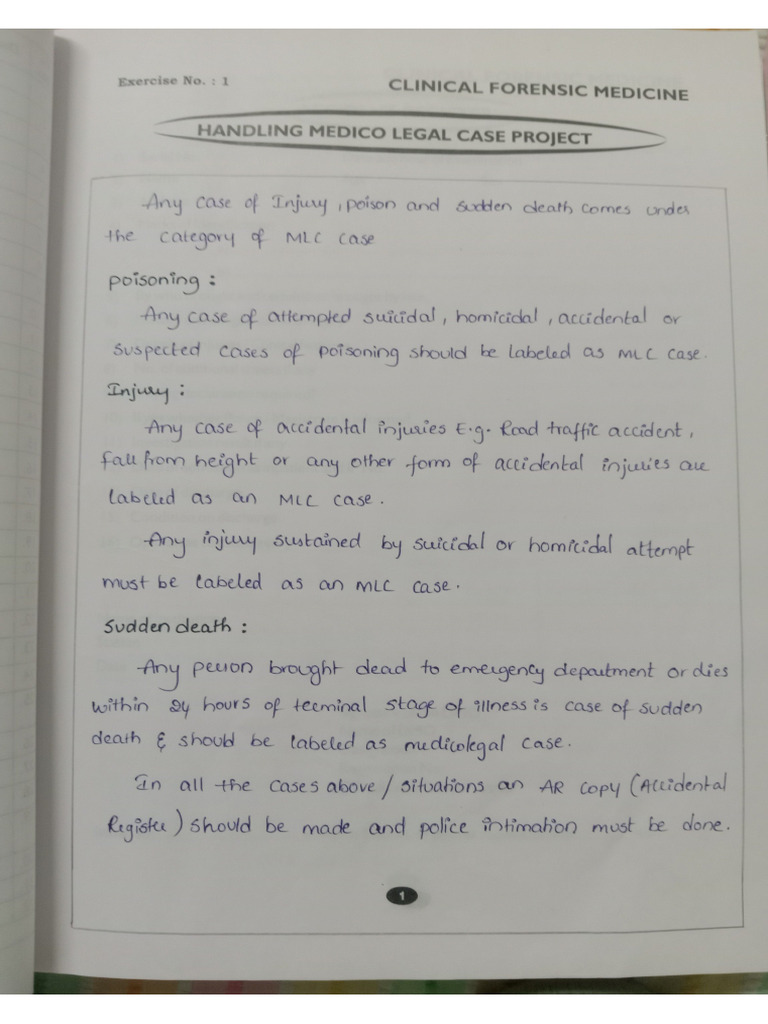 Exercise No. : 1
CLINICAL FORENSIC MEDICINE
HANDLING MEDICO LEGAL CASE PROJECT
Any case of Injury, poison and sudden death comes under
the category of MLC case
poisoning :
Any case of attempted suicidal, homicidal, accidental or
suspected cases of poisoning should be labeled as MLC case.
Injury :
Any case of accidental injuries E.g. Road traffic accident,
fall from height or any other form of accidental injuries are
labeled as an MLC case.
Any injury sustained by suicidal or homicidal attempt
must be labeled as an MLC case.
Sudden death :
Any person brought dead to emergency department or dies
within 24 hours of terminal stage of illness is case of sudden
death & should be labeled as medicolegal case.
In all the cases above / situations an AR copy (Accidental
Register) should be made and police intimation must be done.
1